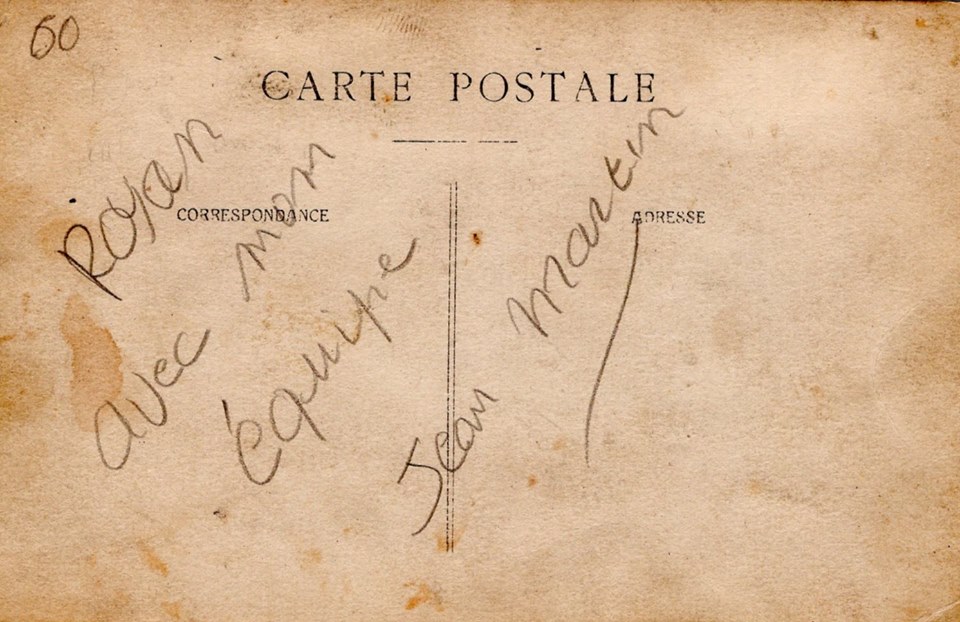 60
CARTE POSTALE
CORRESPONDANCE
ADRESSE
Royan
avec mon
équipe
Jean Martin